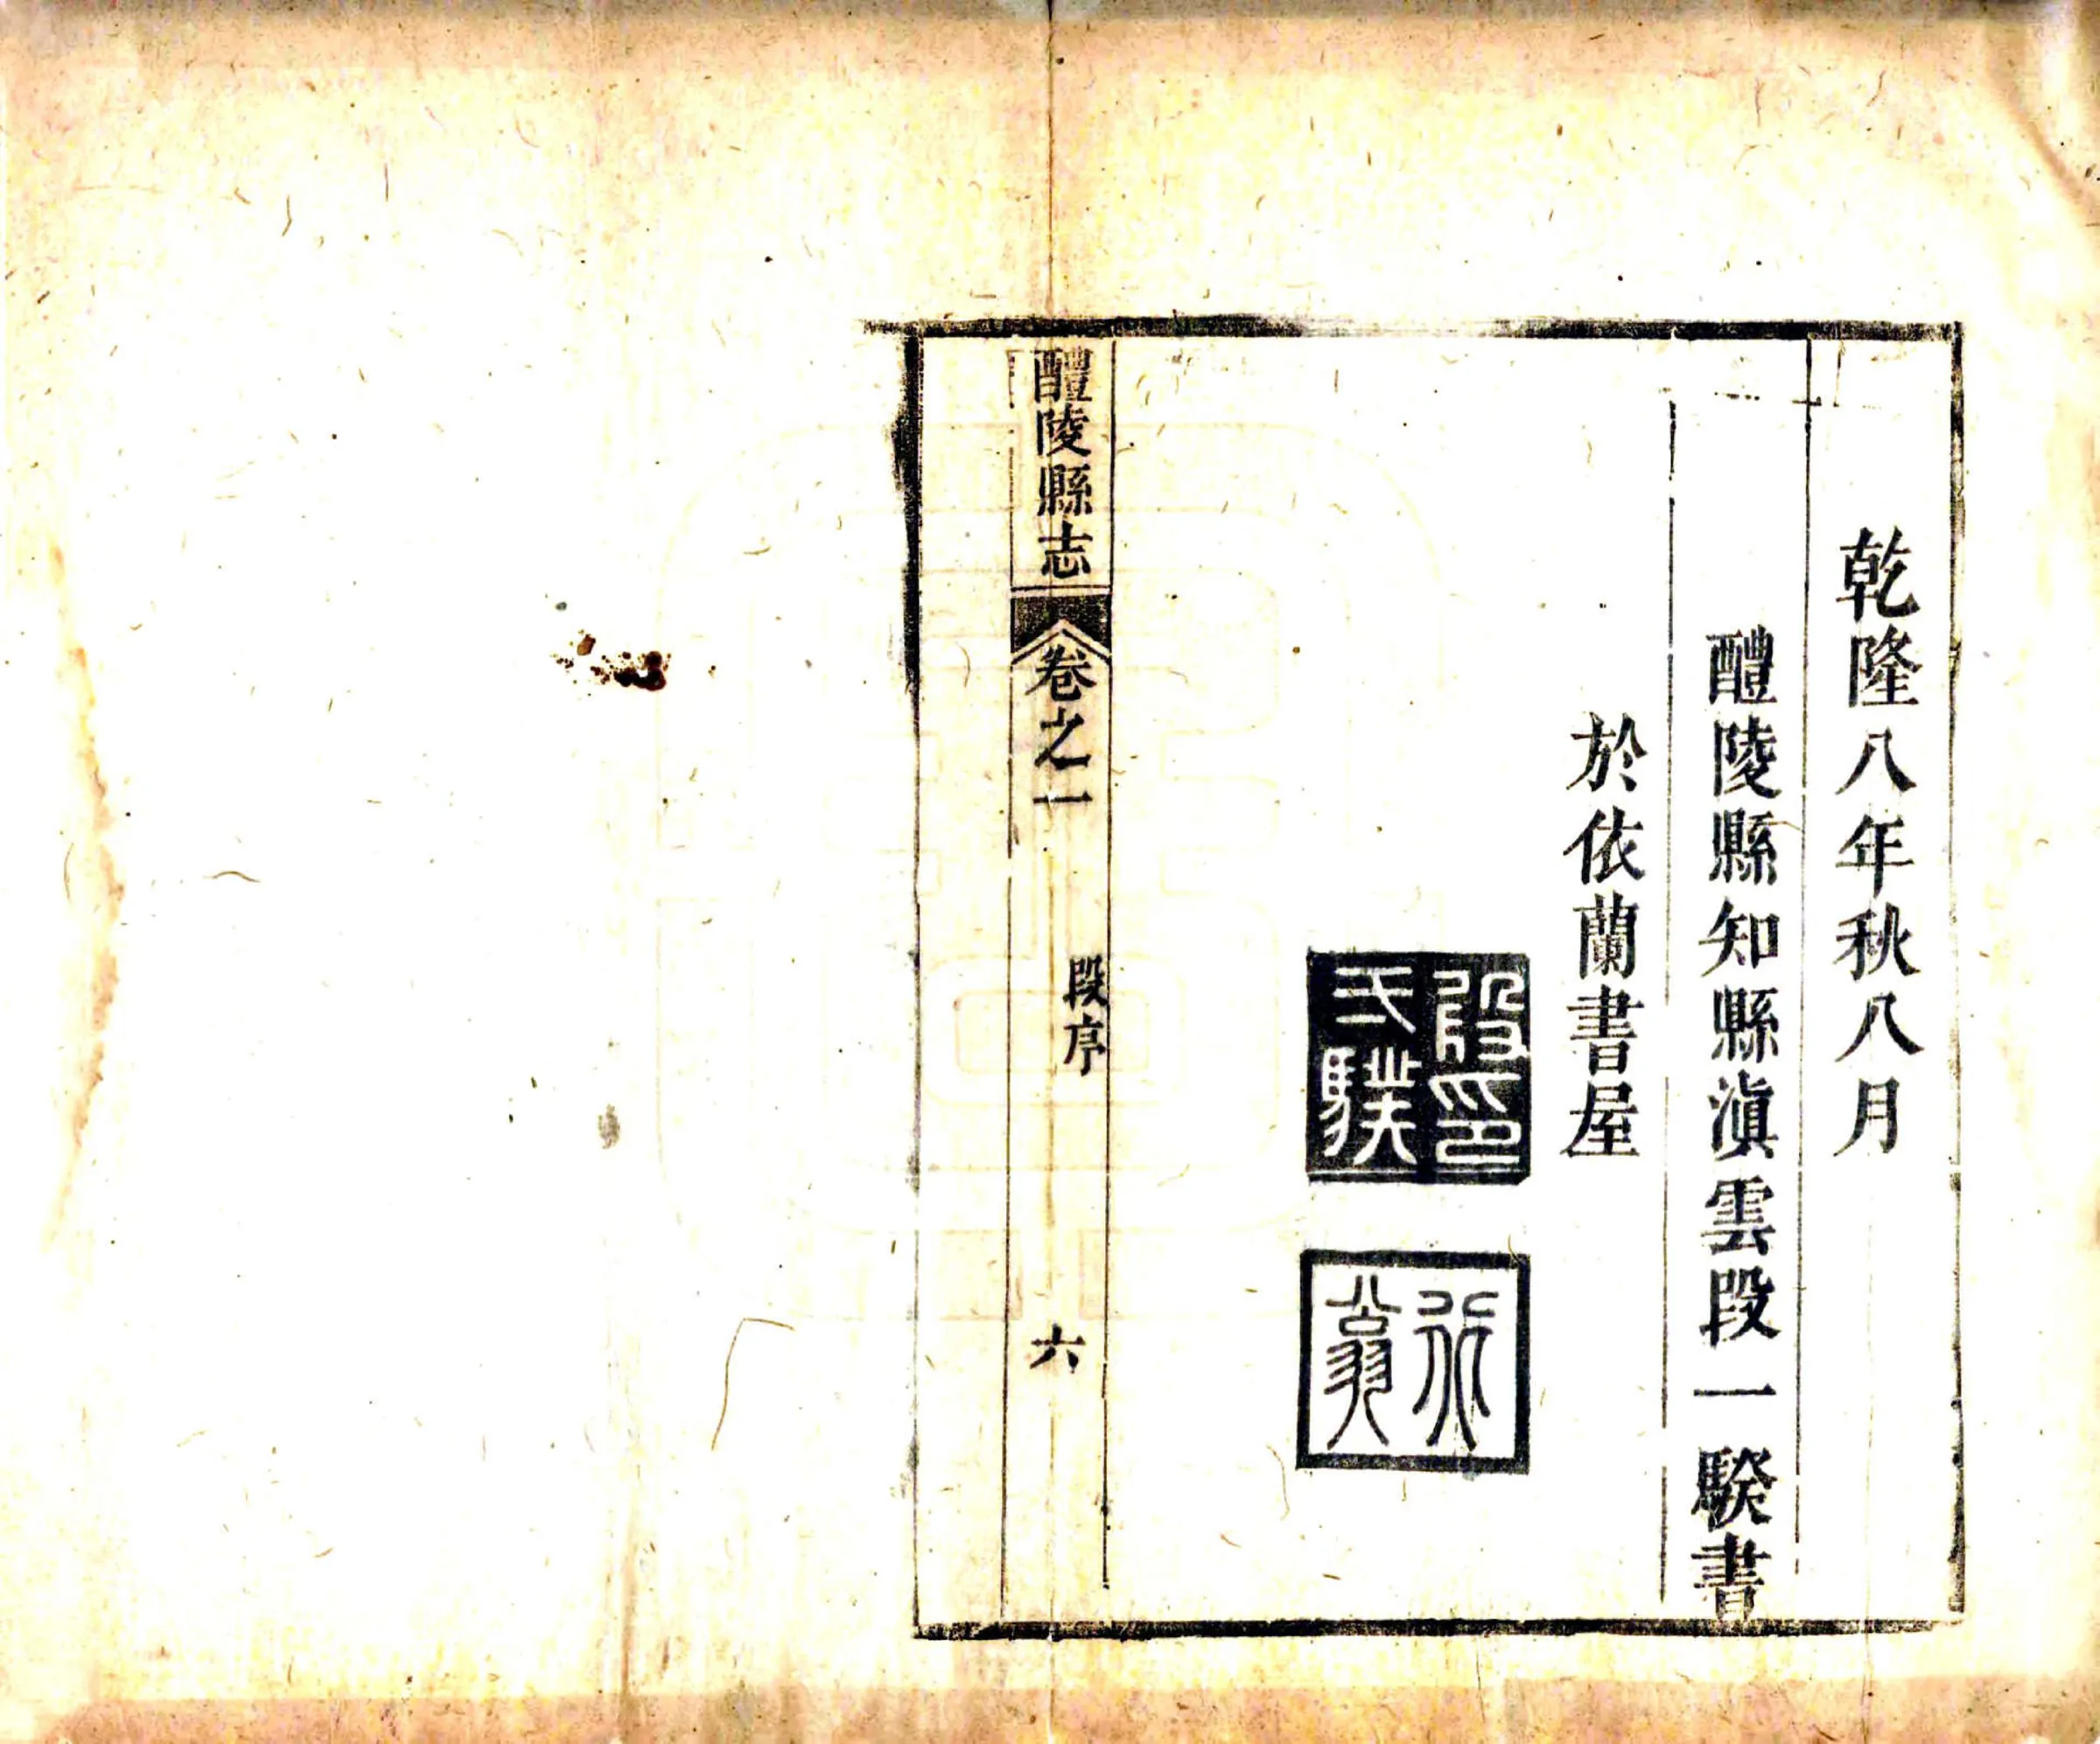 乾隆八年秋八月
醴陵縣知縣滇雲段一騤書
於依蘭書屋
段印
氏騤
醴陵縣志
卷之一
段序
六